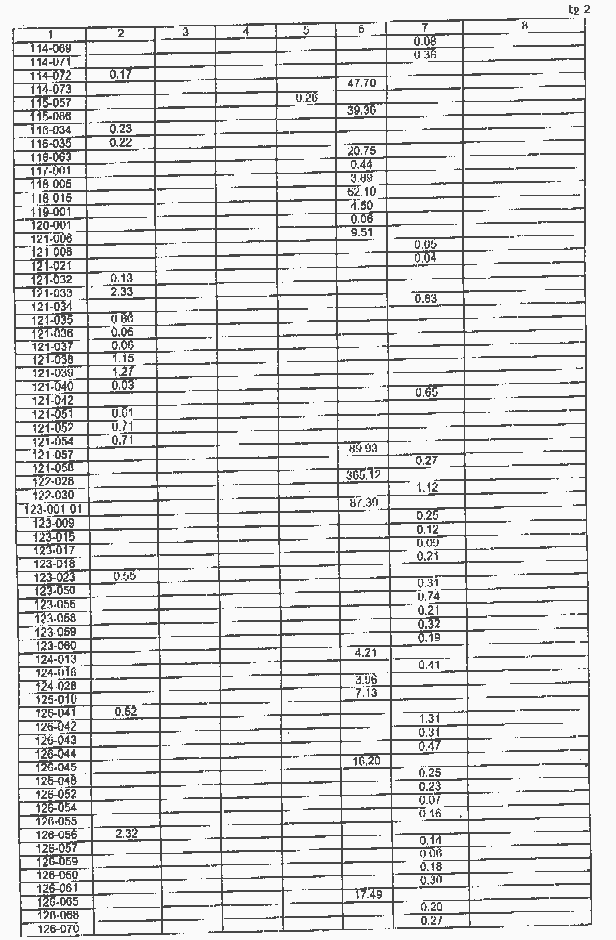 tp 2
1 2 3 4 5 6 7 8
114-069 0.08
114-071 0.36
114-072 0.17
114-073 47.70
115-057 0.26
115-066 39.36
116-034 0.23
116-035 0.22
116-063 20.75
117-001 0.44
118-005 3.89
118-015 52.10
119-001 4.50
120-001 0.06
121-006 9.51
121-008 0.05
121-021 0.04
121-032 0.13
121-033 2.33
121-034 0.63
121-035 0.80
121-036 0.05
121-037 0.06
121-038 1.15
121-039 1.27
121-040 0.03
121-042 0.65
121-051 0.61
121-052 0.71
121-054 0.71
121-057 89.93
121-058 0.27
122-028 365.12
122-030 1.12
123-001 01 87.30
123-009 0.25
123-015 0.12
123-017 0.09
123-018 0.21
123-023 0.55
123-050 0.31
123-055 0.74
123-058 0.21
123-059 0.32
123-060 0.19
124-013 4.21
124-016 0.41
124-028 3.96
125-010 7.13
126-041 0.52
126-042 1.31
126-043 0.31
126-044 0.47
126-045 16.20
126-048 0.25
126-052 0.23
126-054 0.07
126-055 0.16
126-056 2.32
126-057 0.14
126-059 0.06
126-060 0.18
126-061 0.30
126-065 17.49
126-068 0.20
126-070 0.27